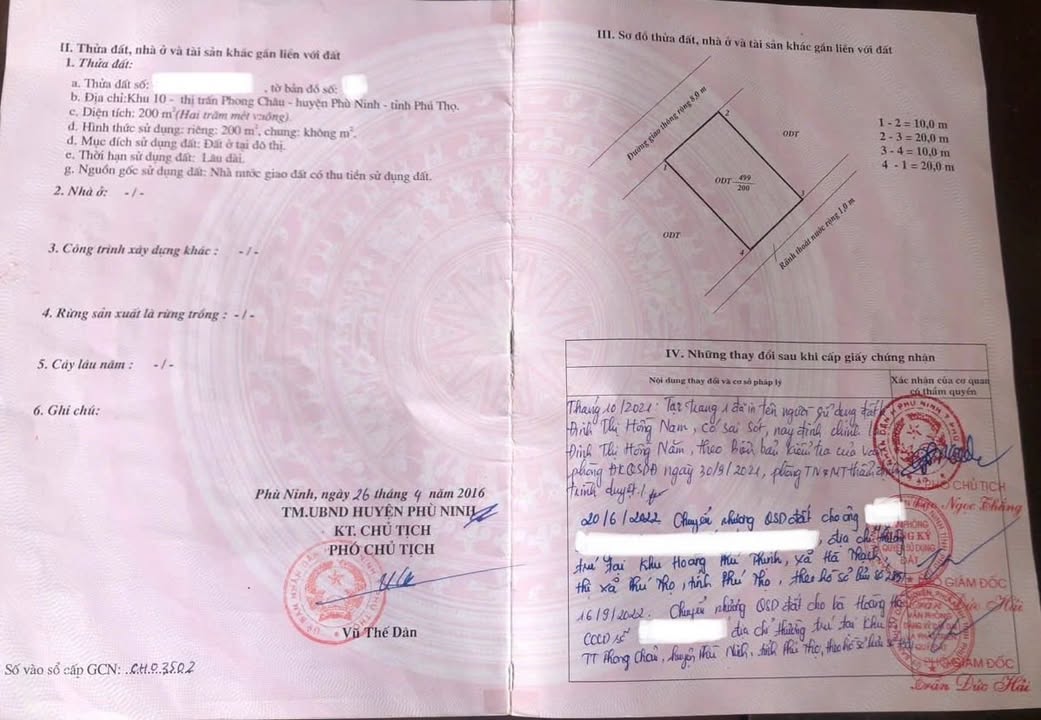 II. Thửa đất, nhà ở và tài sản khác gắn liền với đất
1. Thửa đất:
a. Thửa đất số: , tờ bản đồ số:
b. Địa chỉ:Khu 10 - thị trấn Phong Châu - huyện Phù Ninh - tỉnh Phú Thọ.
c. Diện tích: 200 m²(Hai trăm mét vuông).
d. Hình thức sử dụng: riêng: 200 m², chung: không m².
đ. Mục đích sử dụng đất: Đất ở tại đô thị.
e. Thời hạn sử dụng đất: Lâu dài.
g. Nguồn gốc sử dụng đất: Nhà nước giao đất có thu tiền sử dụng đất.
2. Nhà ở: - / -
3. Công trình xây dựng khác : - / -
4. Rừng sản xuất là rừng trồng : - / -
5. Cây lâu năm : - / -
6. Ghi chú:
Phù Ninh, ngày 26 tháng 4 năm 2016
TM.UBND HUYỆN PHÙ NINH
KT. CHỦ TỊCH
PHÓ CHỦ TỊCH
Vũ Thế Dân
Số vào sổ cấp GCN: CH.0.3502
III. Sơ đồ thửa đất, nhà ở và tài sản khác gắn liền với đất
Đường giao thông rộng 8,0 m
2
ODT
1
ODT 499
200
3
ODT
4
Rãnh thoát nước rộng 1,0 m
1 - 2 = 10,0 m
2 - 3 = 20,0 m
3 - 4 = 10,0 m
4 - 1 = 20,0 m
IV. Những thay đổi sau khi cấp giấy chứng nhận
Nội dung thay đổi và cơ sở pháp lý
Xác nhận của cơ quan
có thẩm quyền
Tháng 10/2021: Tại trang 1 đã in tên người sử dụng đất
Đinh Thị Hồng Nam, có sai sót, nay đính chính
Đinh Thị Hồng Năm, theo biên bản kiểm tra của văn
phòng ĐKQSDĐ ngày 30/9/2021, phòng TN&MT thẩm định
trình duyệt./.
PHÓ CHỦ TỊCH
Ngọc Thắng
20/6/2022 Chuyển nhượng QSD đất cho ông
, địa chỉ thường
trú tại Khu Hoàng Phú Thịnh, xã Hà Thạch,
thị xã Phú Thọ, tỉnh Phú Thọ, theo hồ sơ lưu số
PHÓ GIÁM ĐỐC
Trần Đức Hải
16/9/2022. Chuyển nhượng QSD đất cho bà Hoàng
CCCD số địa chỉ thường trú tại Khu
TT Phong Châu, huyện Phù Ninh, tỉnh Phú Thọ, theo hồ sơ lưu số
PHÓ GIÁM ĐỐC
Trần Đức Hải